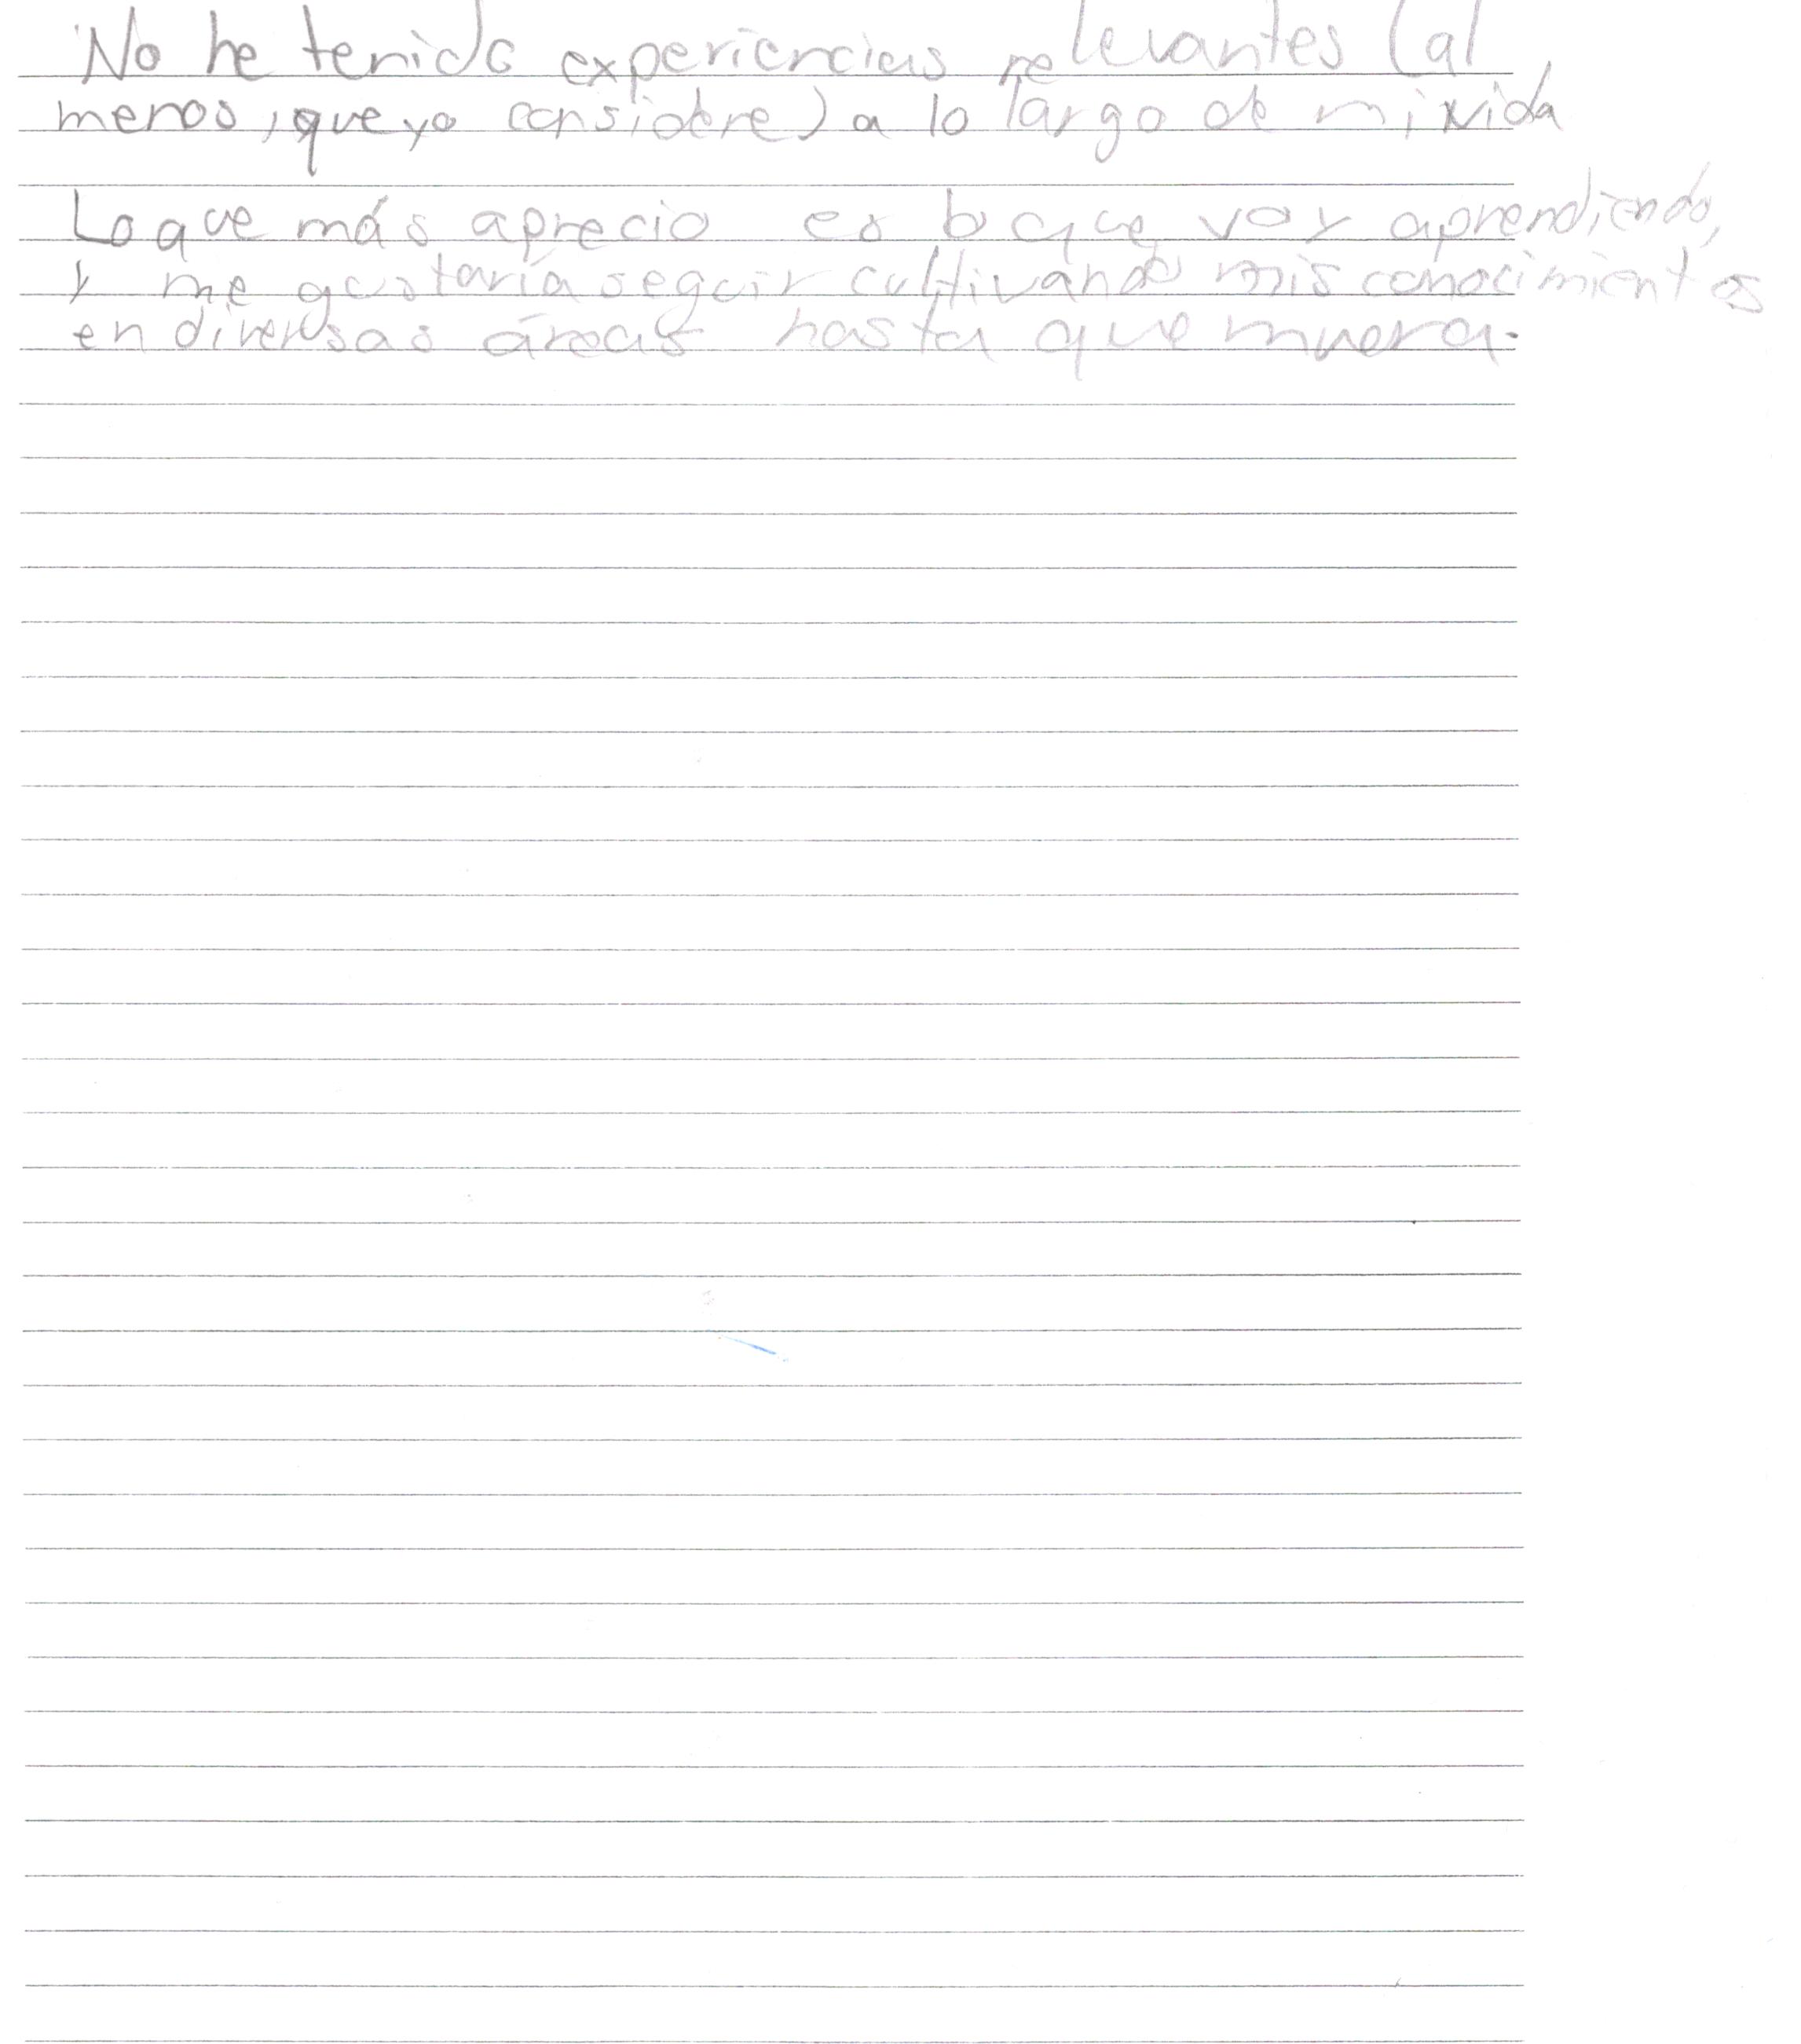 No he tenido experiencias relevantes (al
menos, que yo considere) a lo largo de mi vida
Lo que más aprecio es lo que voy aprendiendo,
y me gustaría seguir cultivando mis conocimientos
en diversas áreas hasta que muera.